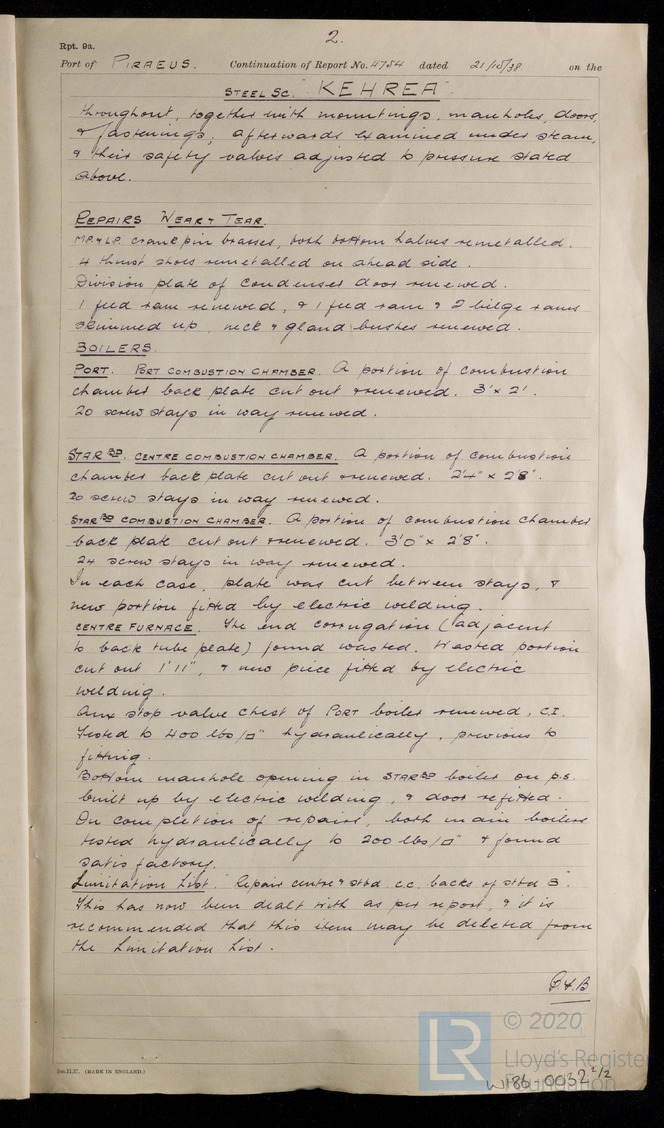 2.
Rpt. 9a.
Port of PIRAEUS. Continuation of Report No. 4754 dated 21/10/38 on the
STEEL SC. "KEHREA".
throughout, together with mountings, manholes, doors,
& fastenings; afterwards examined under steam,
& their safety valves adjusted to pressure stated
above.
REPAIRS WEAR & TEAR.
M.P. & L.P. crank pin brasses, both bottom halves remetalled.
4 thrust shoes remetalled on ahead side.
Division plate of condenser door renewed.
1 feed ram renewed, & 1 feed ram & 2 bilge rams
skimmed up, neck & gland bushes renewed.
BOILERS.
PORT. PORT COMBUSTION CHAMBER. A portion of combustion
chamber back plate cut out & renewed. 3' x 2'.
20 screw stays in way renewed.
STARBD. CENTRE COMBUSTION CHAMBER. A portion of combustion
chamber back plate cut out & renewed. 2'4" x 2'8".
20 screw stays in way renewed.
STARBD COMBUSTION CHAMBER. A portion of combustion chamber
back plate cut out & renewed. 3'0" x 2'8".
24 screw stays in way renewed.
In each case, plate was cut between stays, &
new portion fitted by electric welding.
CENTRE FURNACE. The end corrugation (adjacent
to back tube plate) found wasted. Wasted portion
cut out 1'11", & new piece fitted by electric
welding.
Aux stop valve chest of PORT boiler renewed, C.I.
Tested to 400 lbs/□" hydraulically, previous to
fitting.
Bottom manhole opening in STARBD boiler on p.s.
built up by electric welding, & door refitted.
On completion of repairs, both main boilers
tested hydraulically to 200 lbs/□" & found
satisfactory.
Limitation List. "Repair centre & stbd c.c. backs of stbd B".
This has now been dealt with as per report, & it is
recommended that this item may be deleted from
the Limitation List.
LR © 2020
Lloyd's Register
Foundation
W186-0032 2/2
(MADE IN ENGLAND.)